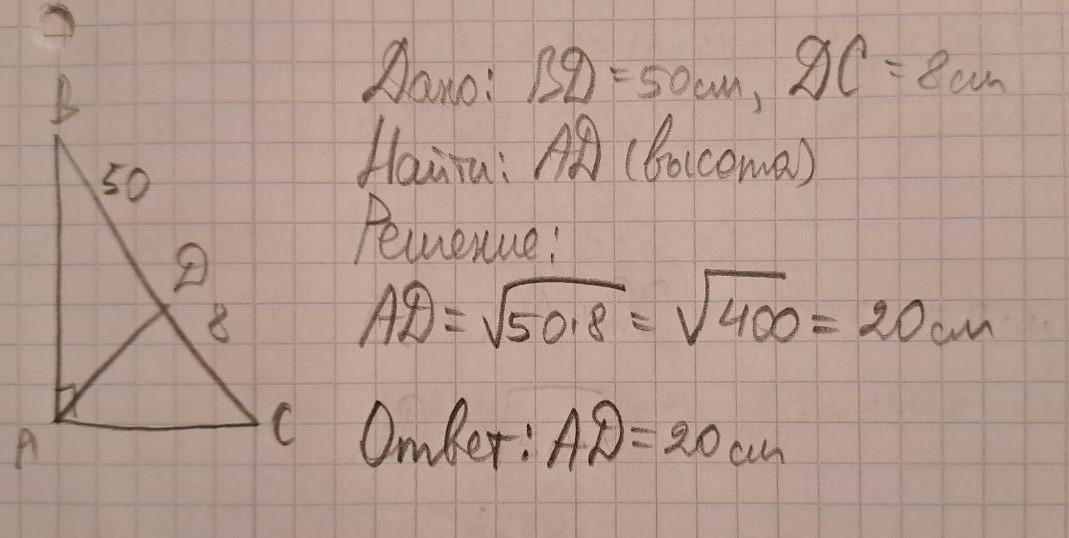 B
50
D
8
A
C
Дано: BD = 50 см, DC = 8 см
Найти: AD (высота)
Решение:
AD = √50·8 = √400 = 20 см
Ответ: AD = 20 см